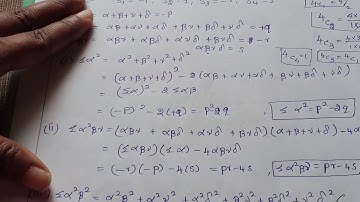 α+β+γ+δ = -p
αβ + αγ + αδ + βγ + βδ + γδ = +q
αβγ + αβδ + αγδ + βγδ = -r
αβγδ = S
≤α² = α² + β² + γ² + δ²
= (α+β+γ+δ)² - 2(αβ + αγ + αδ + βγ + βδ + γδ)
= (≤α)² - 2 ≤αβ
= (-P)² - 2(+q) = P² - 2q, ≤ α² = P² - 2q
(ii) ≤α²βγ = (αβγ + αβδ + αγδ + βγδ)(α+β+γ+δ) - 4α
= (≤αβγ)(≤α) - 4αβγδ
= (-r)(-p) - 4(S) = pr - 4s, ≤α²βγ = pr - 4s
≤α²β² = α²β² + α²γ² + α²δ² + β²γ² + β²δ² + γ²δ²